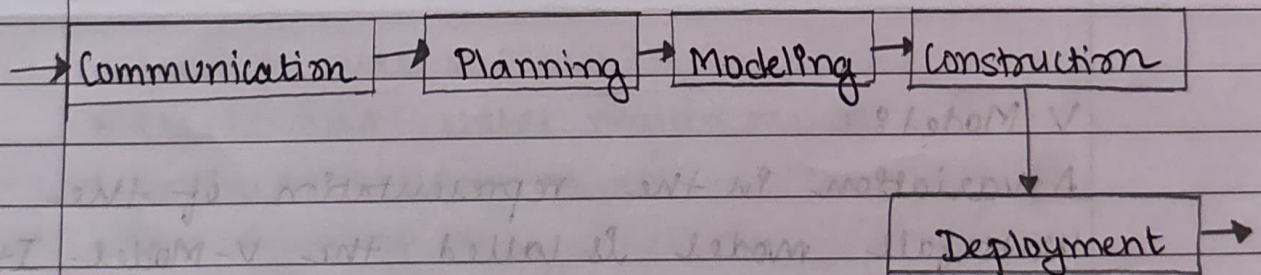 Communication Planning Modeling Construction
Deployment